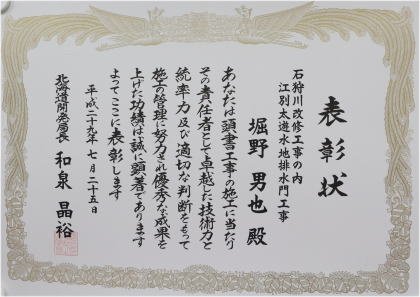 表彰状
石狩川改修工事の内
江別太遊水地排水門工事
堀野男也殿
あなたは頭書工事の施工に当たり
その責任者として卓越した技術力と
統率力及び適切な判断をもって
施工の管理に努力され優秀な成果を
上げた功績は誠に顕著であります
よってここに表彰します
平成二十九年七月二十五日
北海道開発局長 和泉晶裕